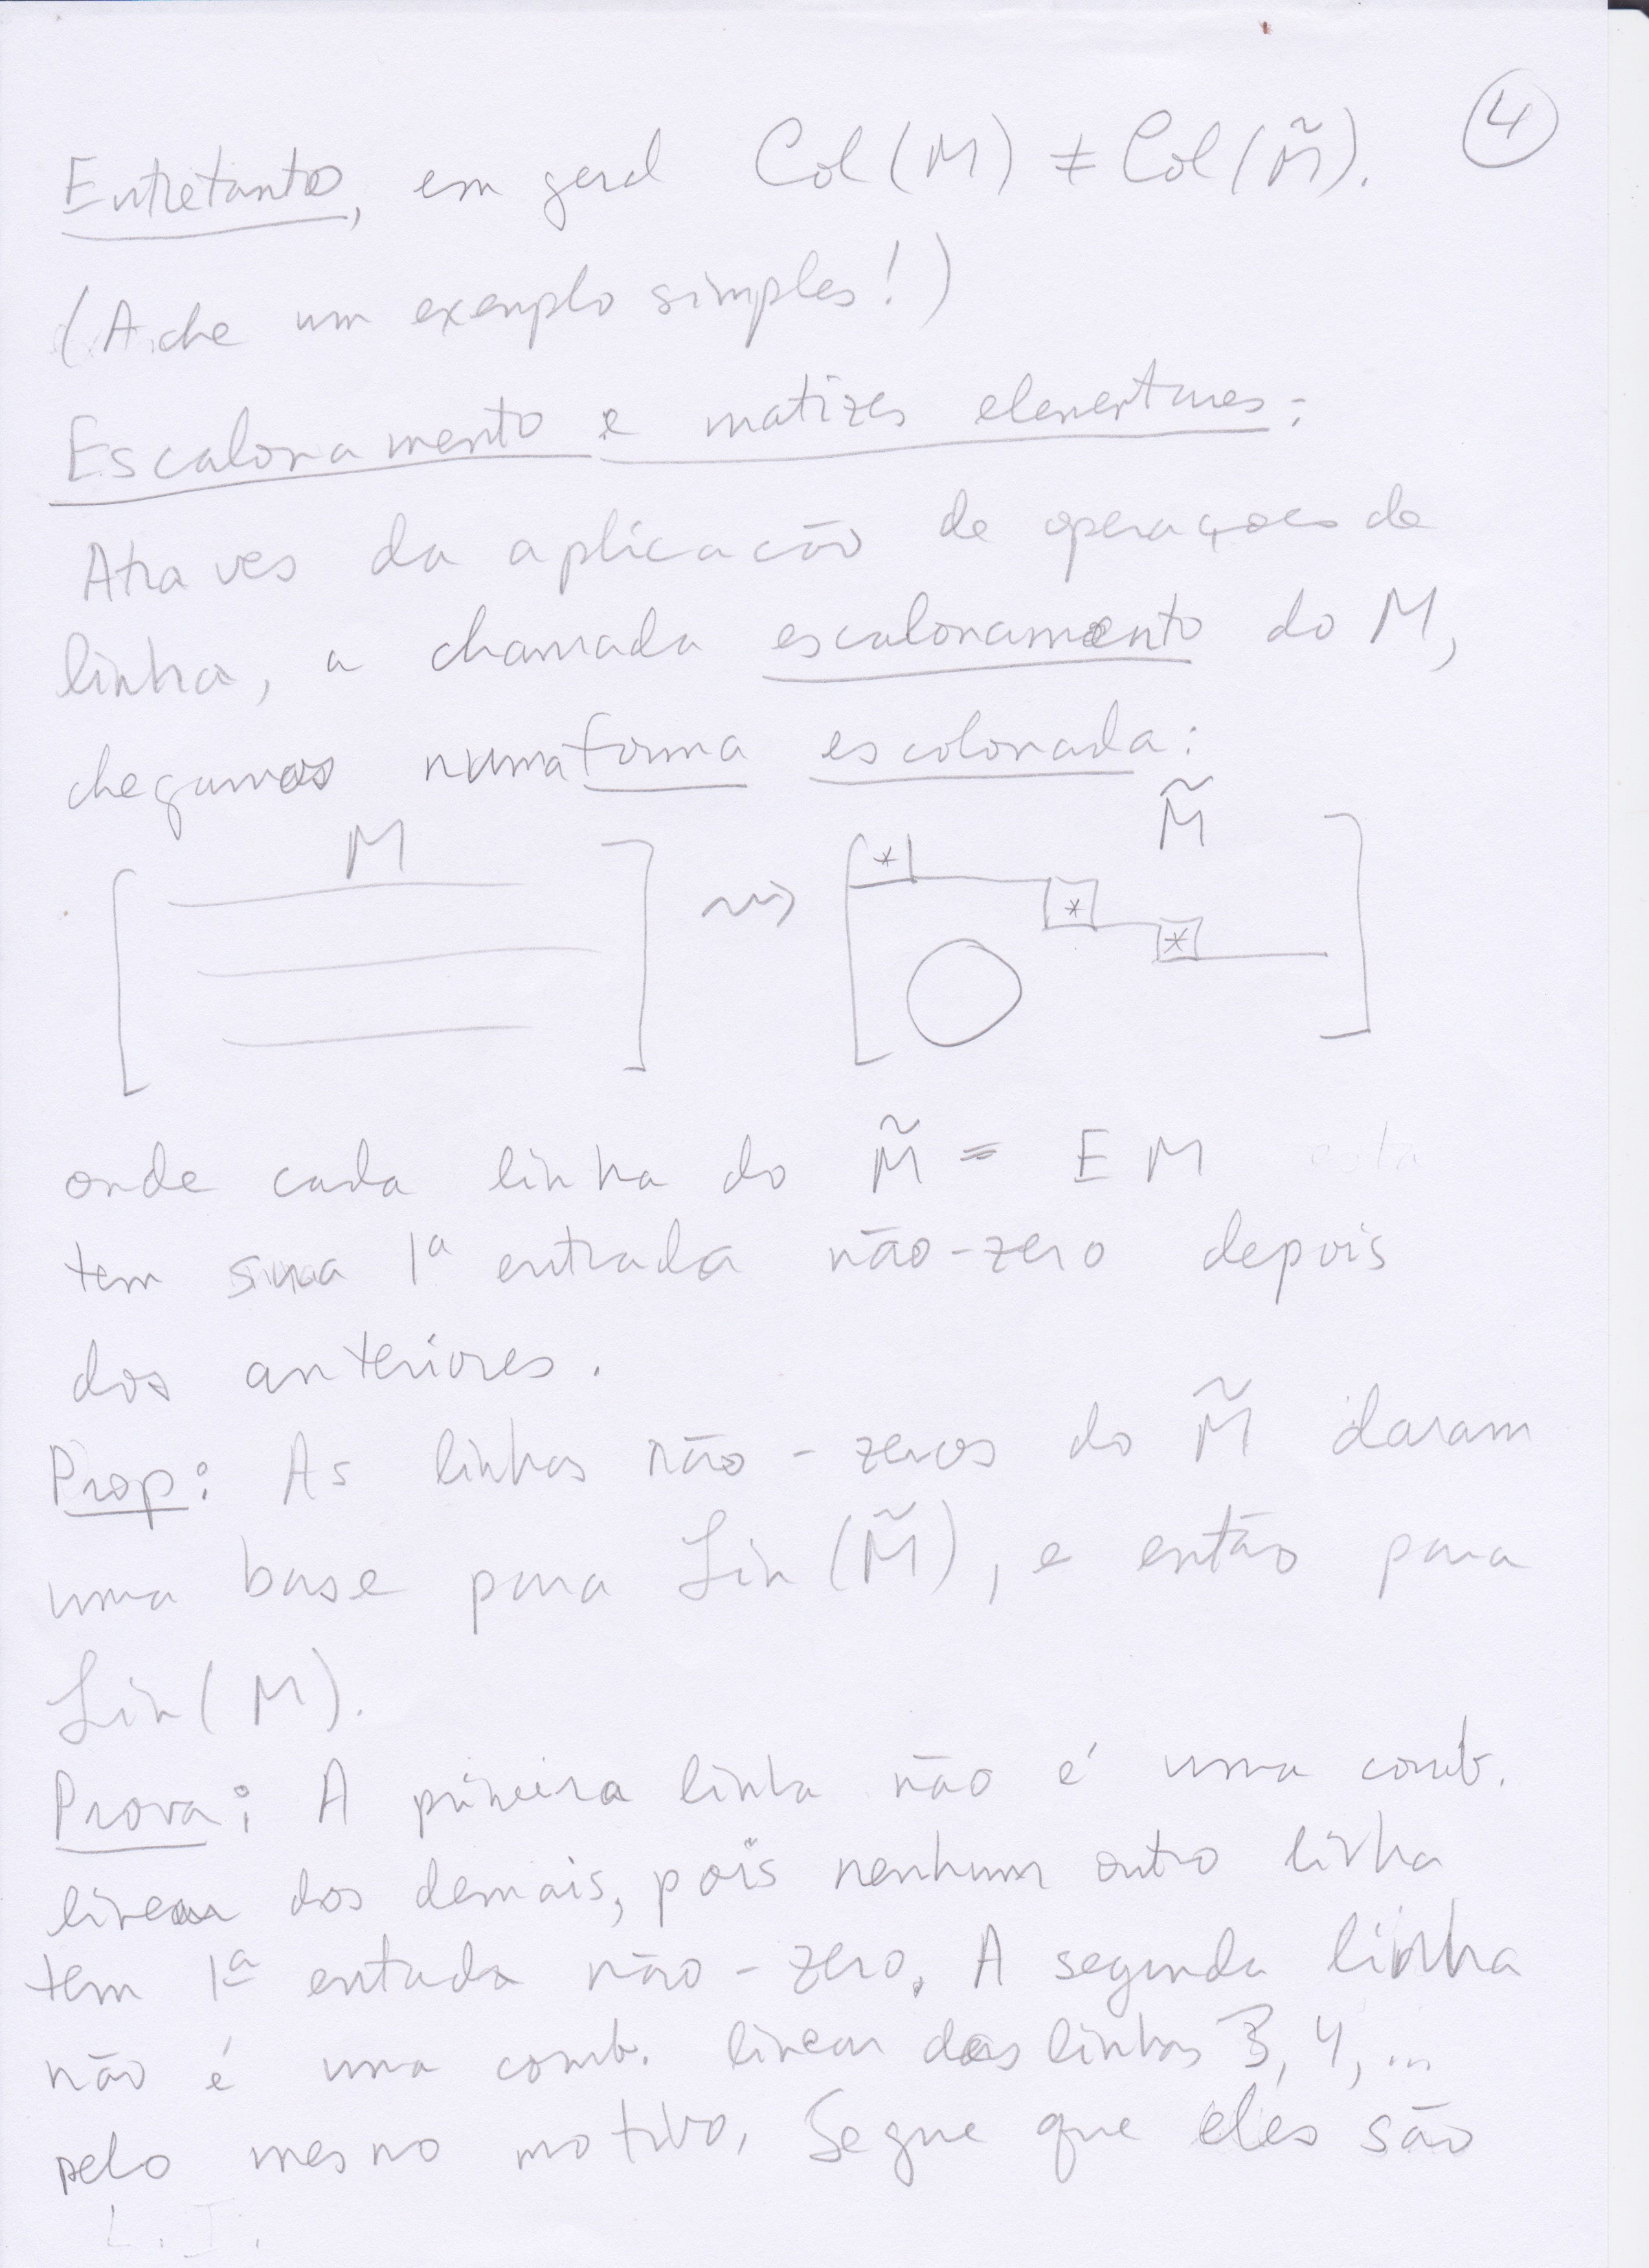 4
Entretanto, em geral Col(M) ≠ Col(M̃).
(Ache um exemplo simples!)
Escalonamento e matizes elementares:
Atraves da aplicacão de operações de
linha, a chamada escalonamento do M,
chegamos numa forma escolonada:
M ⇝ M̃
* * *
onde cada linha do M̃ = EM esta
tem sua 1ª entrada não-zero depois
dos anteriores.
Prop: As linhas não-zeros do M̃ daram
uma base para Lin(M̃), e então para
Lin(M).
Prova: A primeira linha não é uma comb.
linear dos demais, pois nenhum outro linha
tem 1ª entrada não-zero. A segunda linha
não é uma comb. linear das linhas 3, 4, ...
pelo mesmo motivo. Segue que eles são
L.I.